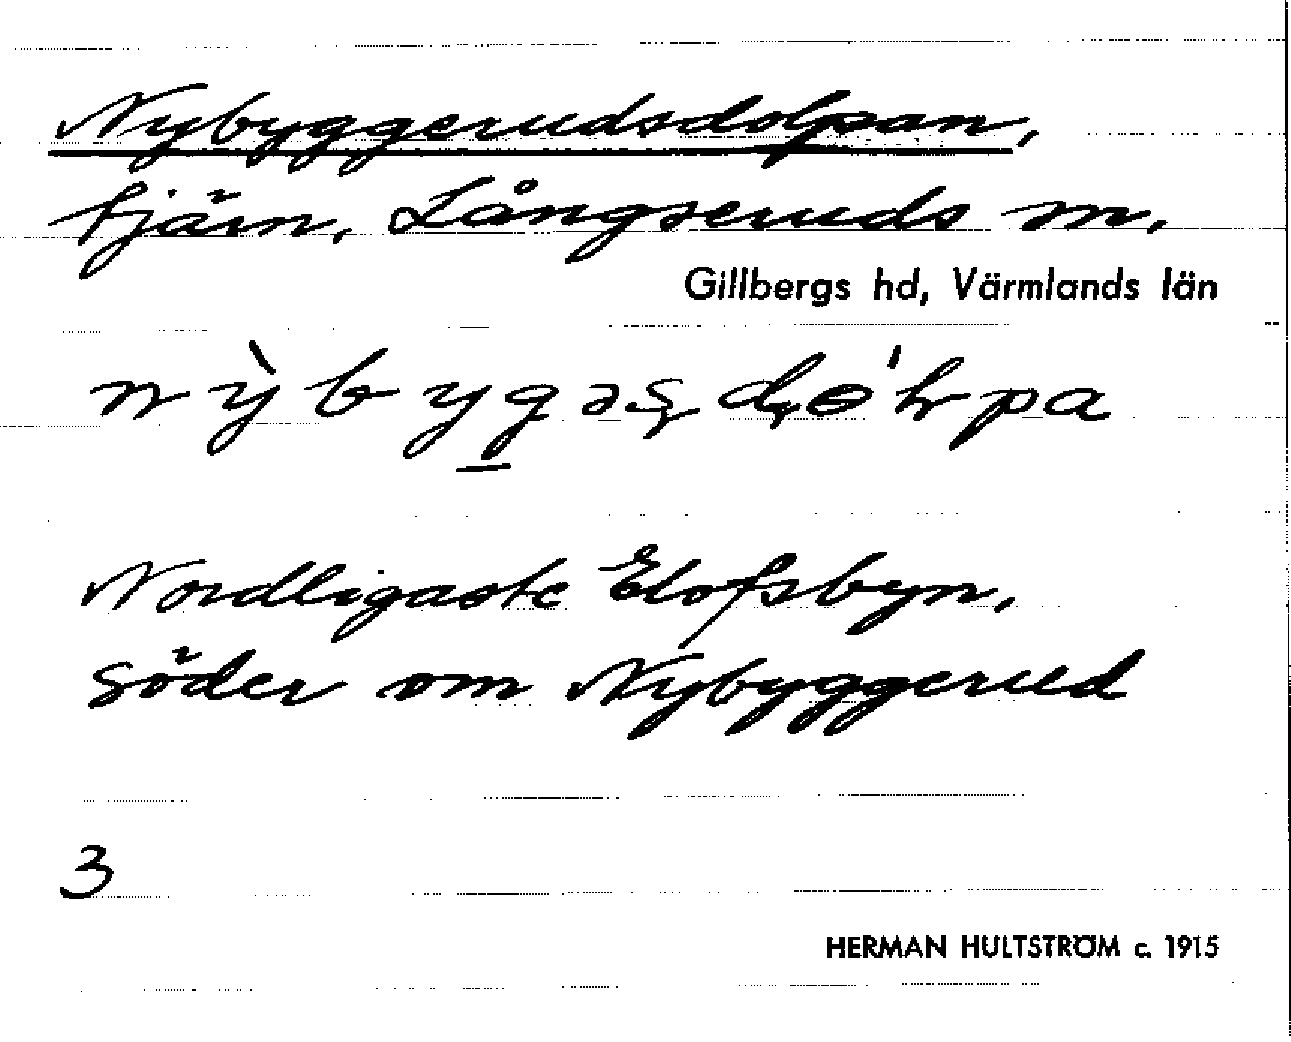 Nybyggerudsdolpan,
tjärn, Långseruds sn.
Gillbergs hd, Värmlands län
Nordligaste Elofsbyn,
söder om Nybyggerud
3
HERMAN HULTSTRÖM c. 1915